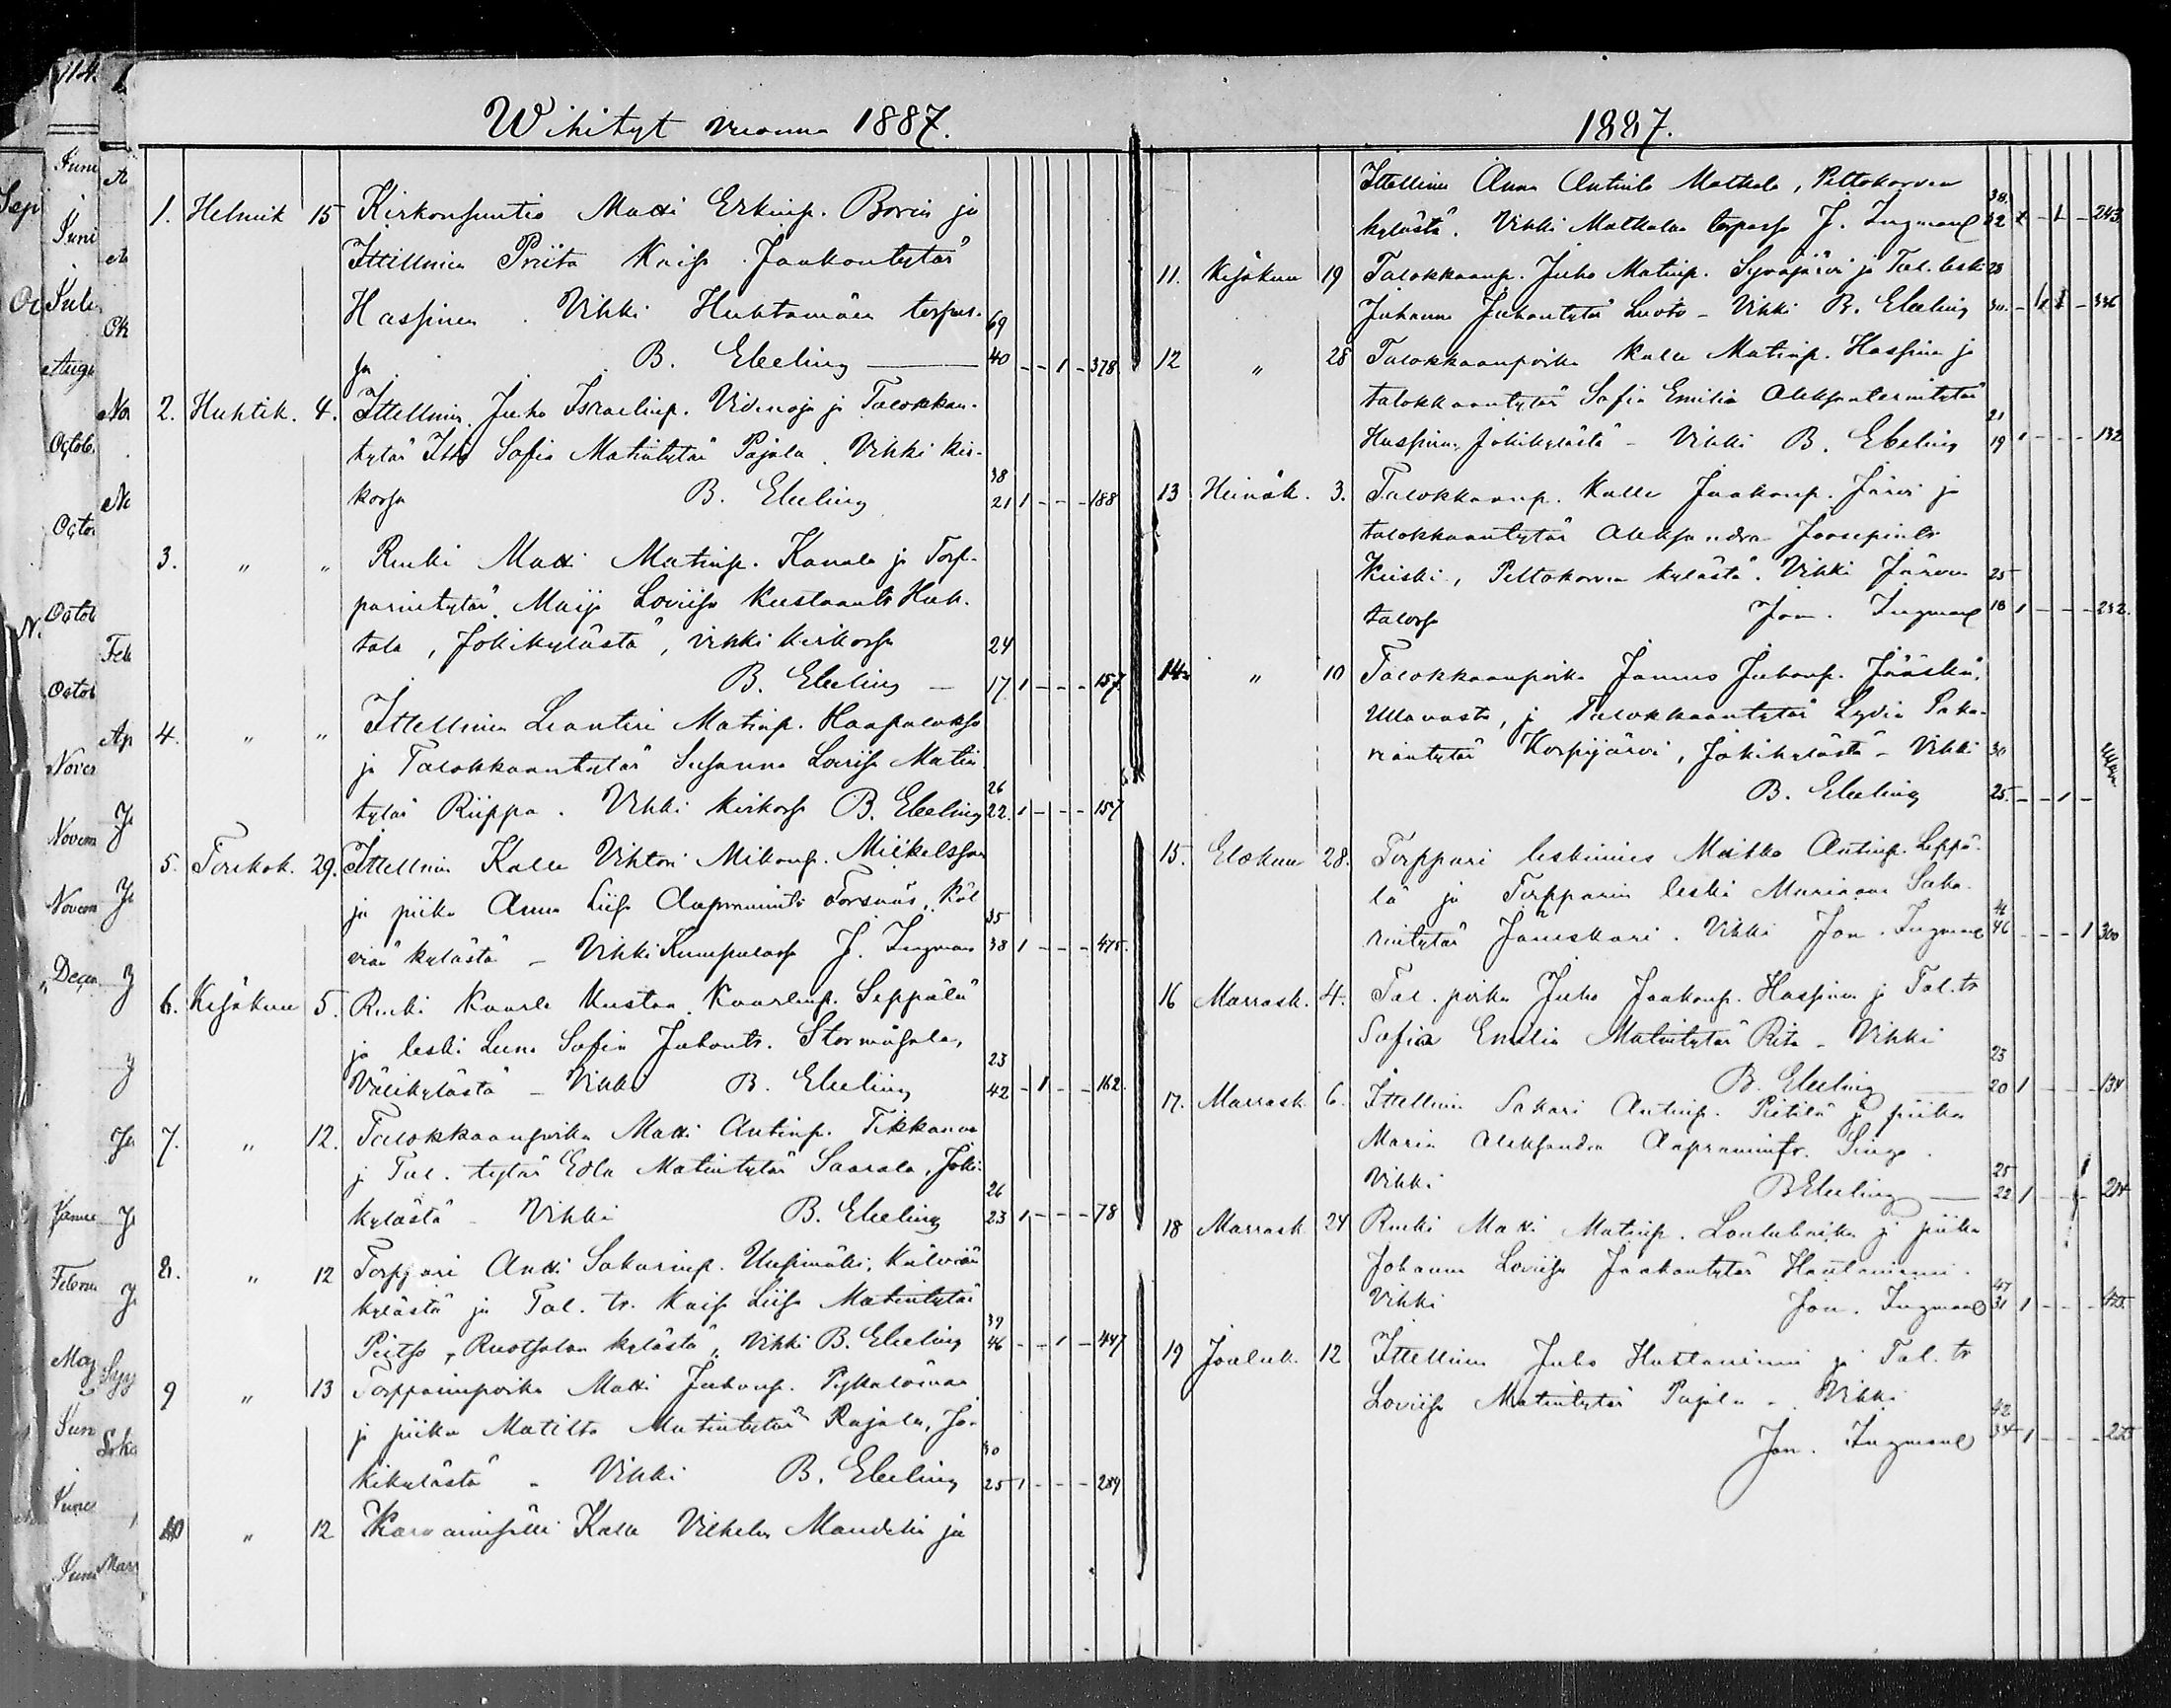 Wihityt vuonna 1887.
1. Helmik 15 Kirkonsuntio Matti Erkinp. Borin ja
Ittellinen Priita Kaisa Jaakontytär
Hassinen. Vihki Huhtamäen torpas- 69
sa B. Ebeling 40 - - 1 - 378
2. Huhtik. 4. Ittellinen Juho Israelinp. Videnoja ja Talokkan-
tytär Sofia Matintytär Pajala. Vihki kir- 38
kossa B. Ebeling 21 1 - - - 188
3. " " Renki Matti Matinp. Kanala ja Torp-
parintytär Maija Loviisa Kustaantr Huh-
tala, Jokikylästä, vihki kirkossa 24
B. Ebeling 17 1 - - - 157
4. " " Ittellinen Leanteri Matinp. Haapalakso
ja Talokkaantytär Susanna Loviisa Matin- 26
tytär Riippa. Vihki kirkossa B. Ebeling 22. 1 - - - 157
5. Toukok. 29. Ittellinen Kalle Vihtori Mikonp. Mickelsson
ja piika Anna Liisa Aapraminti Forsnäs, Käl- 35
viän kylästä - Vihki Kumpulassa J. Ingman 38 1 - - - 475.
6. Kesäkuu 5. Renki Kaarle Kustaa Kaarlenp. Seppälä
ja leski Leena Sofia Juhontr. Stormåsala, 23
Välikylästä - Vihki B. Ebeling 42 - 1 - - 162.
7. " 12. Talokkaanpoika Matti Antinp. Tikkanen
ja Tal. tytär Edla Matintytär Saarala, Joki- 26
kylästä - Vihki B. Ebeling 23 1 - - - 78
8. " 12 Torppari Antti Sakarinp. Uusimäki, Kälviän
kylästä ja Tal. tr. Kaisa Liisa Matintytär 39
Peitso, Ruotsalon kylästä, Vihki B. Ebeling 46 - - 1 - 447
9 " 13 Torpparinpoika Matti Juhonp. Pykälöinen
ja piika Matilta Matintytär Rajala, Jo- 30
kikylästä - Vihki B. Ebeling 25 1 - - - 289
10 " 12 Karvarinsälli Kalle Vilhelm Mandelin ja
1887.
Ittellinen Anna Antintr Matkala, Peltokorven 38.
kylästä. Vihki Matkalan torpassa J. Ingman 32 - 1 - 243
11. Kesäkuu 19 Talokkaanp. Juho Matinp. Syväjärvi ja Tal. leski 28
Johanna Juhontytär Luoto - Vihki B. Ebeling 30. - 1 - 336
12 " 28 Talokkaanpoika Kalle Matinp. Hassinen ja
talokkaantytär Sofia Emilia Aleksanterintytär 21
Hassinen Jokikylästä - Vihki B. Ebeling 19 1 - - - 132
13 Heinäk. 3. Talokkaanp. Kalle Jaakonp. Järvi ja
talokkaantytär Aleksandra Joosepintr
Kiiski, Peltokorven kylästä. Vihki Järven 25
talossa Jon. Ingman 18 1 - - - 232.
14. " 10 Talokkaanpoika Jannes Juhonp. Jääskä,
Ullavasta, ja Talokkaantytär Lydia Saka-
riantytär Korpijärvi, Jokikylästä - Vihki 30
B. Ebeling 25. - - 1 - Ullava
15. Elokuu 28. Torppari leskimies Matti Antinp. Leppä-
lä ja Torpparin leski Mariana Saka-
rintytär Jäneskari. Vihki Jon. Ingman 46 - - - 1 300
16 Marrask. 4. Tal. poika Juho Jaakonp. Hassinen ja Tal. tr
Sofia Emilia Matintytär Rita - Vihki 23
B. Ebeling 20 1 - - - 134
17. Marrask. 6. Ittellinen Sakari Antinp. Pietilä ja piika
Maria Aleksandra Aapramintr. Singo. 25
Vihki B Ebeling 22 1 - - - 214
18 Marrask 24 Renki Matti Matinp. Loulubnika ja piika
Johanna Loviisa Jaakontytär Hautaniemi. 47
Vihki Jon. Ingman 31 1 - - - 425.
19 Jouluk. 12 Ittellinen Juho Hautaniemi ja Tal. tr
Loviisa Matintytär Pajala - Vihki 42
Jon. Ingman 34 1 - - - 225